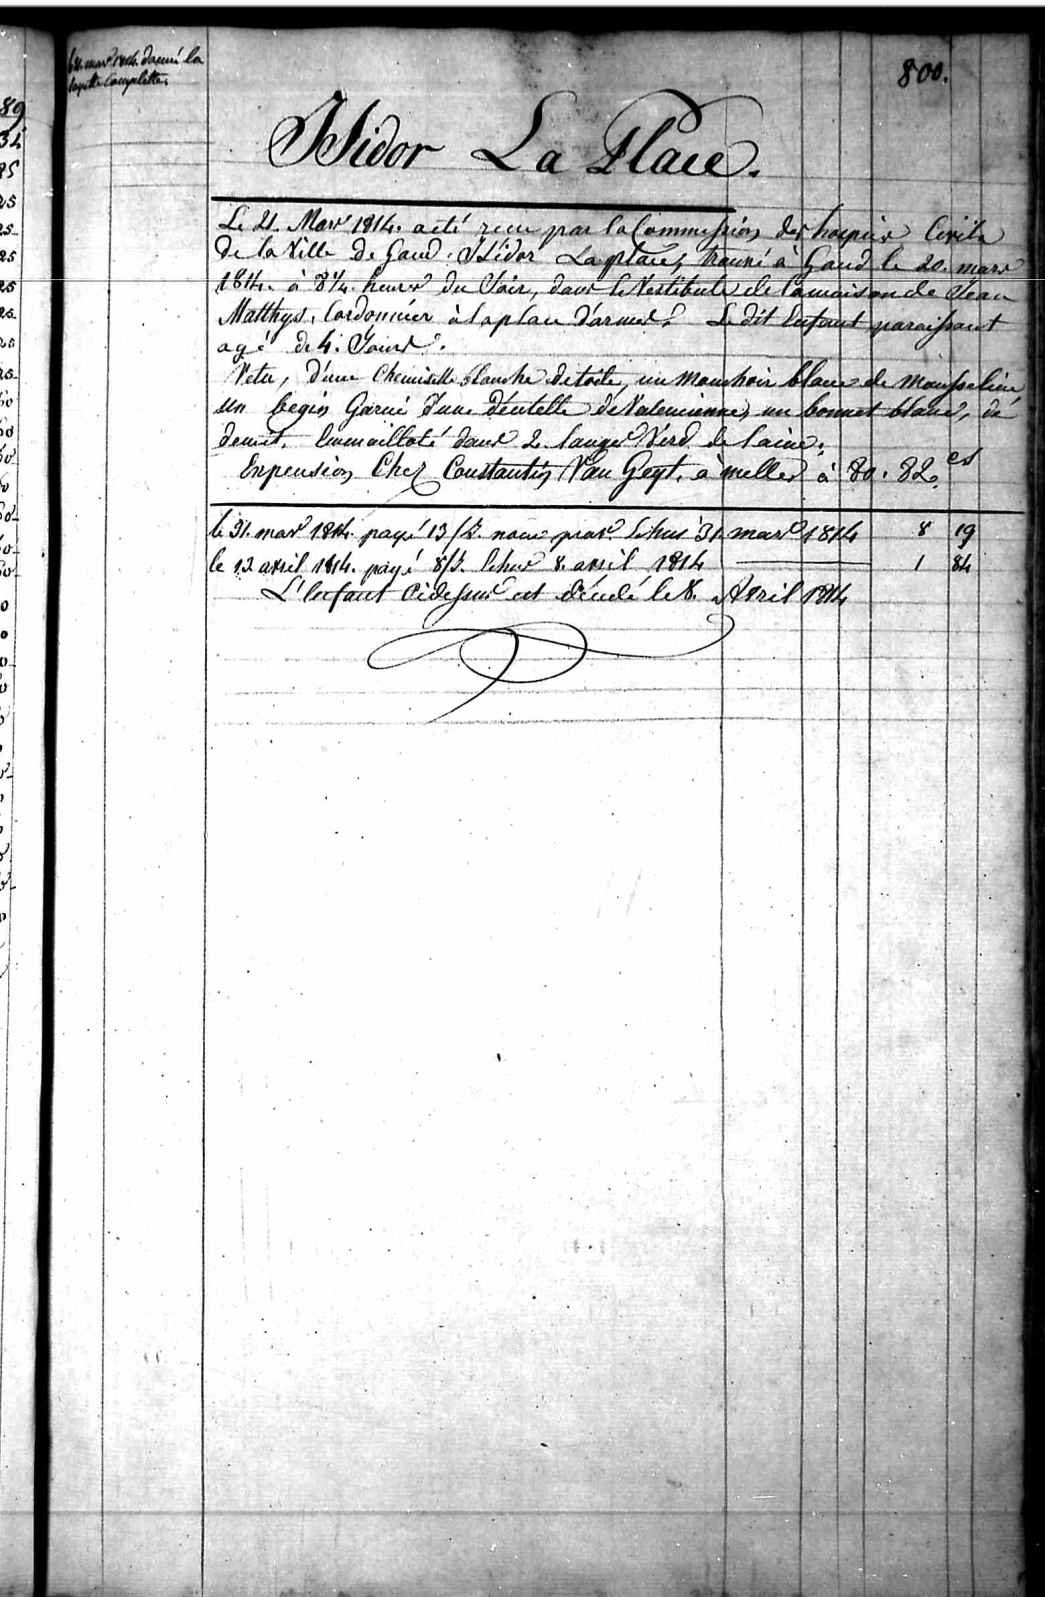 le 21. mars 1814. donné la
layette complette.
800.
Isidor La Place.
Le 21. Mars 1814. a été recu par la Commission des hospices Civils
de la Ville de Gand. Isidor Laplace, trouvé à Gand le 20. mars
1814. à 8 1/4. heures du Soir, dans le Vestibule de la maison de Jean
Matthys, Cordonnier à la place d'armes. Le dit Enfant paraissant
agé de 4. Jours.
Vetu, d'une Chemisette blanche de toile, un mouchoir blanc de mousseline
un begin Garni d'une dentelle de Valencienne, un bonnet blanc, de
demit. Emmailloté dans 2. langes Verd de laine.
En pension Chez Constantin Van Geyt, à melle à 80. 82 cs
le 31. mars 1814. payé 13/ nove prov. Echus 31 mars 1814 8 19
le 13 avril 1814. payé 8/ Echus 8. avril 1814 1 84
L'Enfant Cidessus est décédé le 8. Avril 1814
89
34
25
25
25
25
25
25